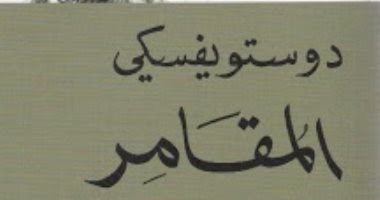 دوستويفسكي
المقَامِر